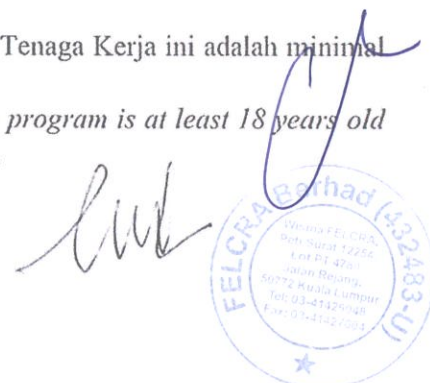 Tenaga Kerja ini adalah minimal
program is at least 18 years old
FELCRA Berhad (432483-U)
Wisma FELCRA,
Peti Surat 12254
Lot PT 4780
Jalan Rejang,
50772 Kuala Lumpur
Tel: 03-41425948